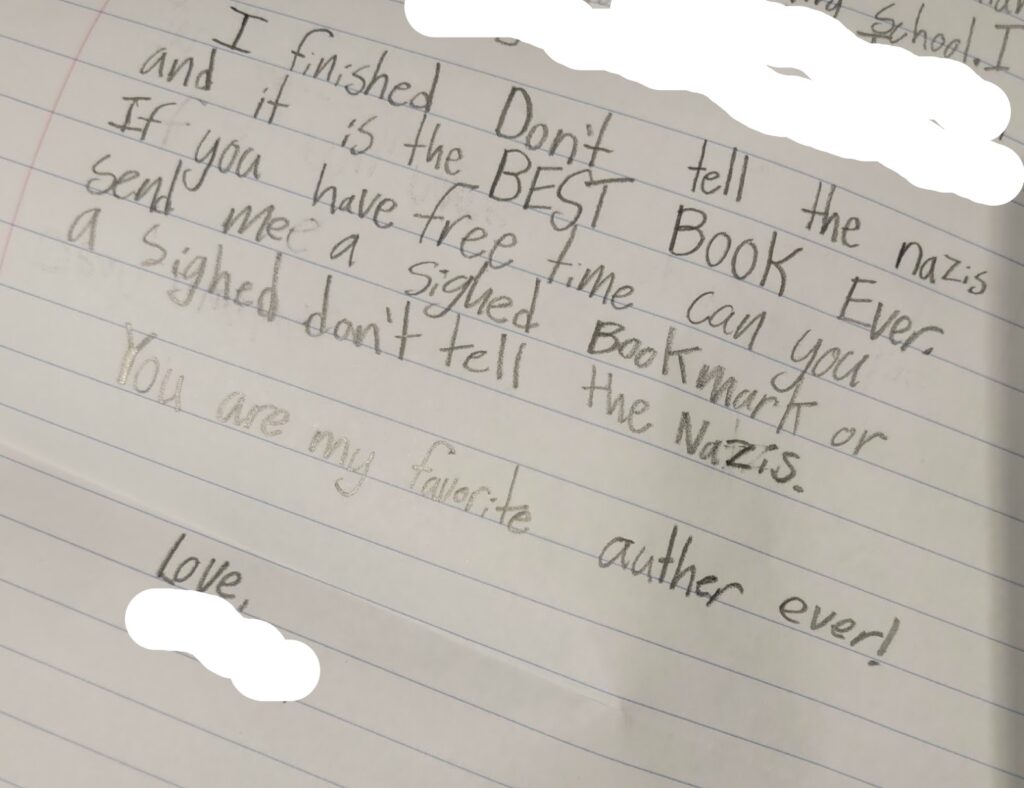 School. I
I finished Don't tell the nazis
and it is the BEST Book Ever.
If you have free time can you
send me a signed Bookmark or
a sighed don't tell the Nazis.
You are my favorite auther ever!
Love,